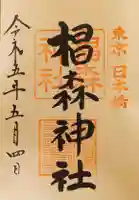 東京 日本橋
椙森神社
令和五年五月四日